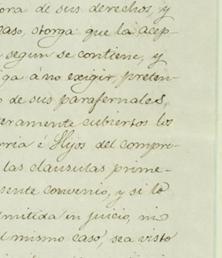 ora de sus derechos, y
caso, otorga que la acep-
segun se contiene, y
ga á no exigir, preten-
o de sus parafernales,
eramente cubiertos los
oria é Hijos del compro-
las clausulas prime-
sente convenio, y si lo
mitida in juicio, ni
l mismo caso, sea visto